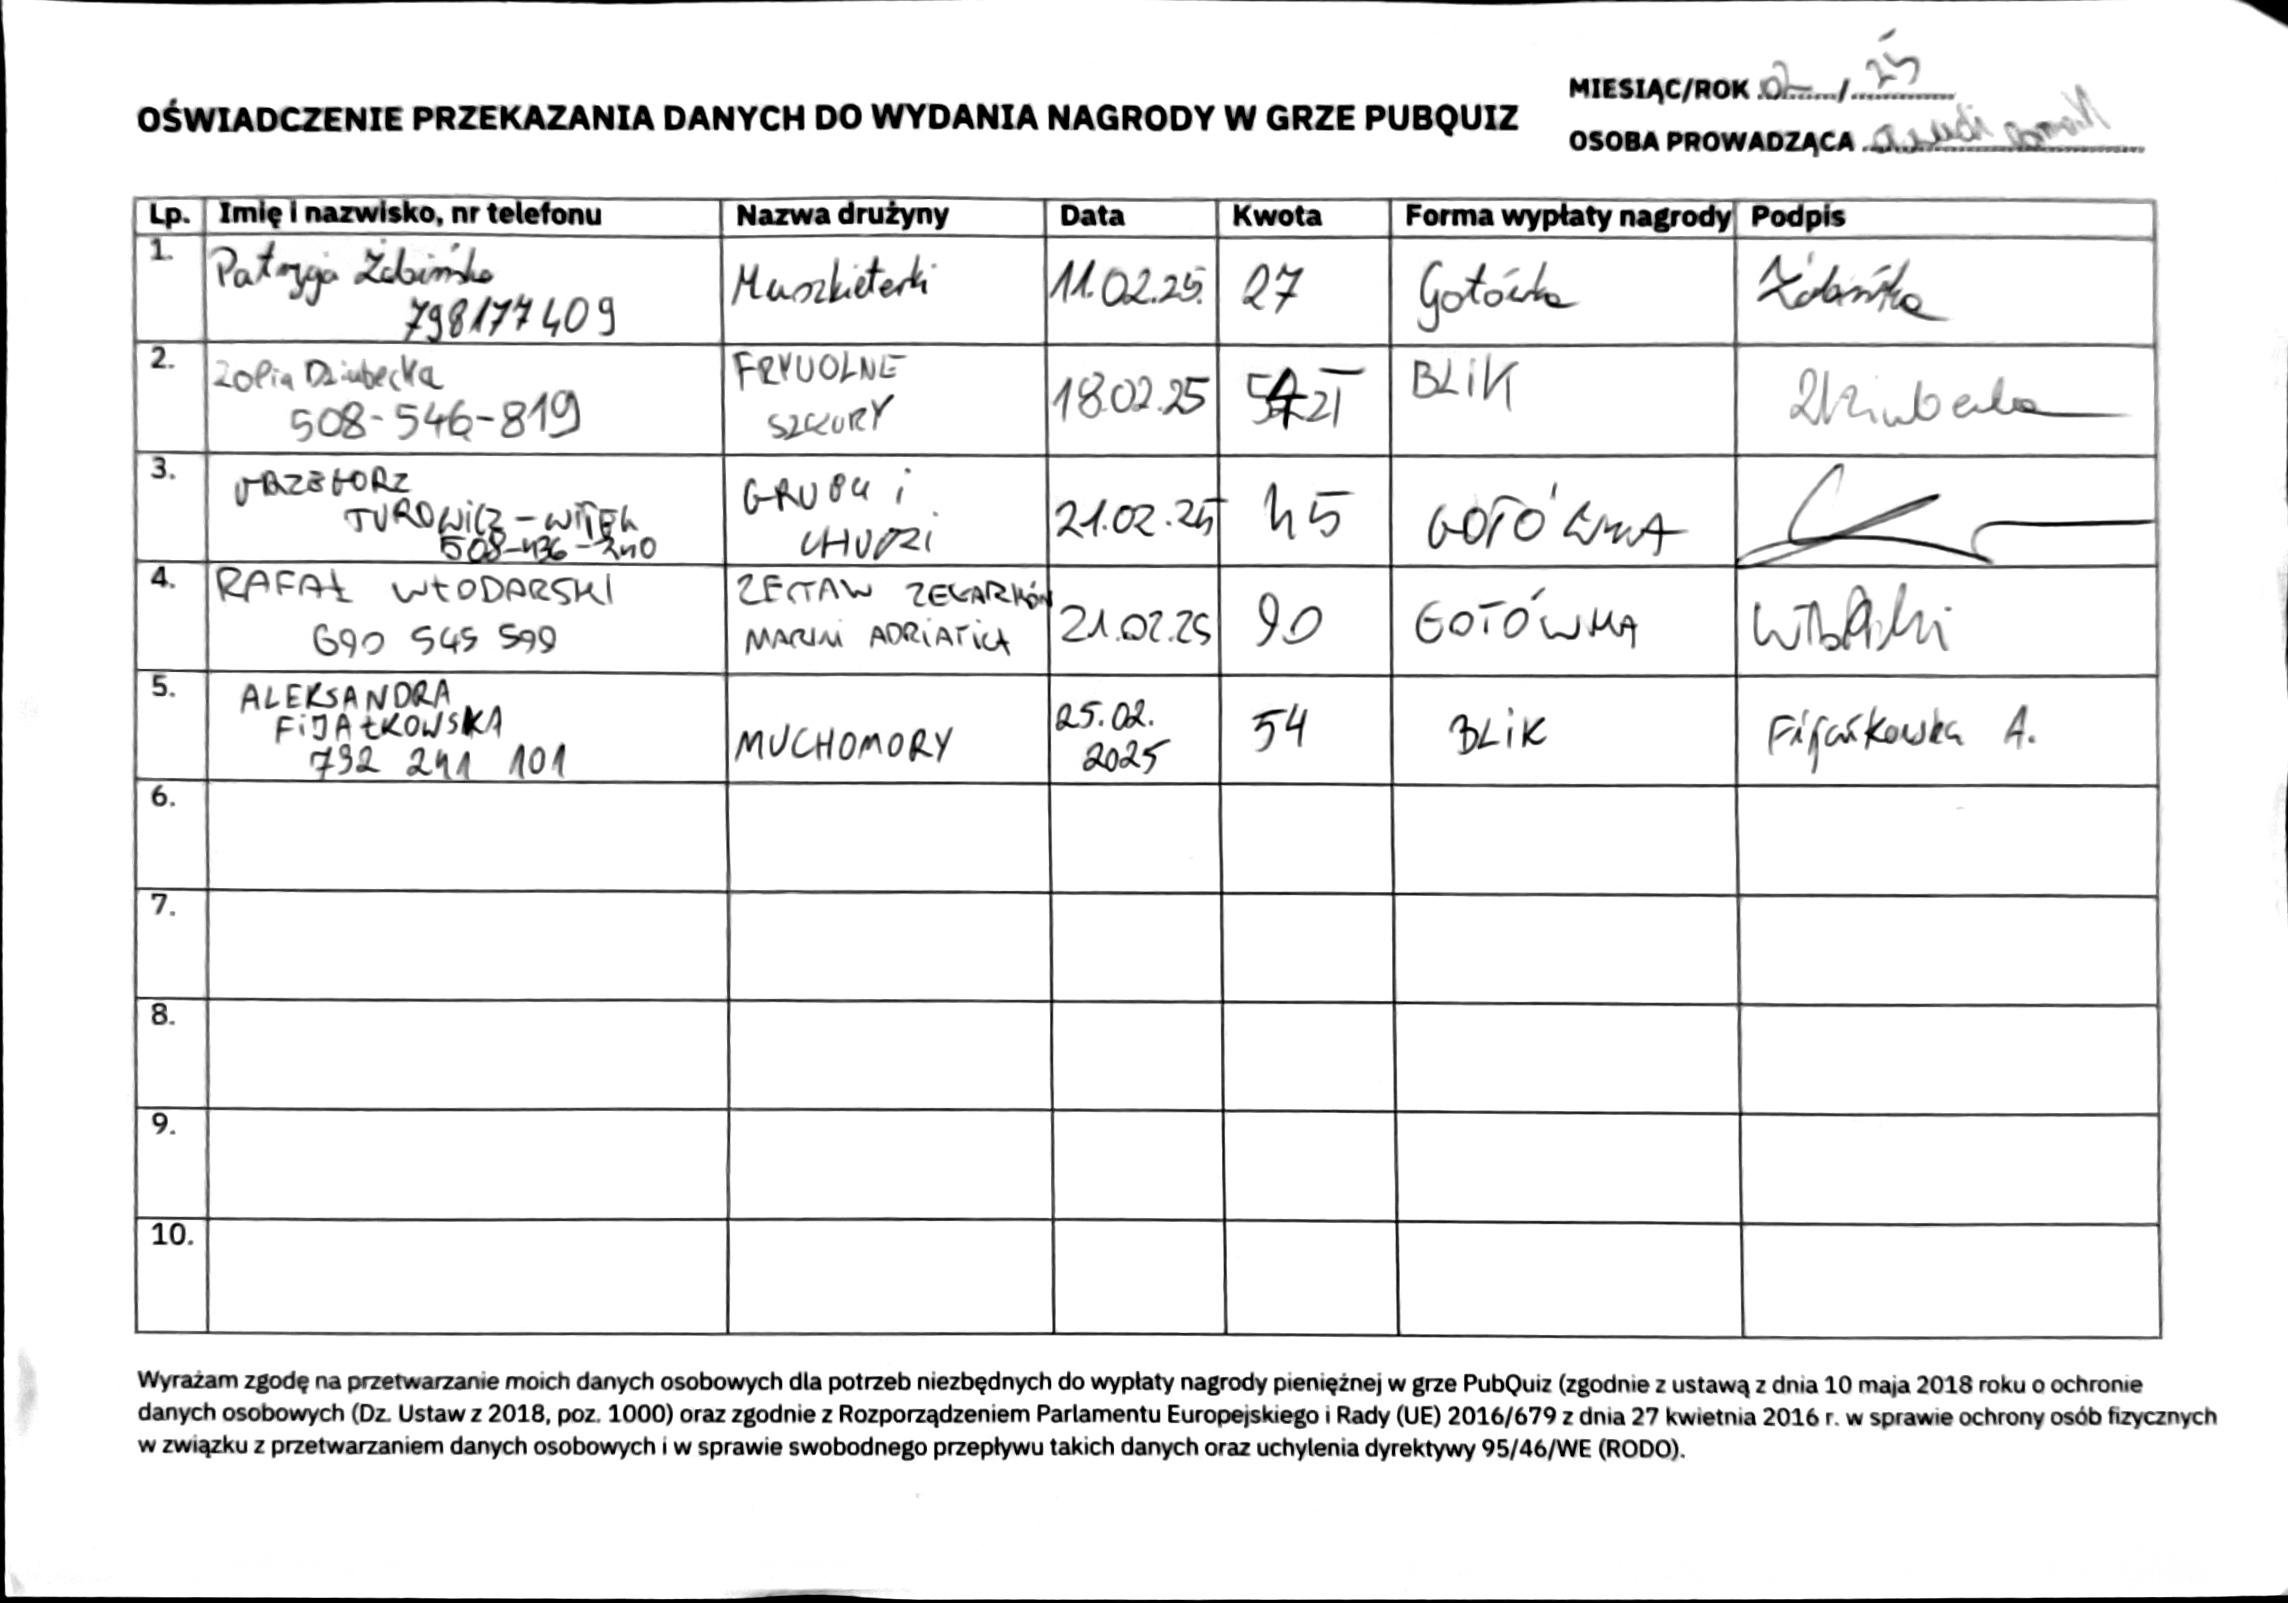 MIESIĄC/ROK 02 / 25
OŚWIADCZENIE PRZEKAZANIA DANYCH DO WYDANIA NAGRODY W GRZE PUBQUIZ
OSOBA PROWADZĄCA
Lp. Imię i nazwisko, nr telefonu Nazwa drużyny Data Kwota Forma wypłaty nagrody Podpis
1. Patrycja Żabińska 798177409 Muszkieterki 11.02.25. 27 Gotówka Żabińska
2. Zofia Dziubecka 508-546-819 FRYUOLNE SZCZURY 18.02.25 54 zł BLIK Dziubecka
3. GRZEGORZ TUROWICZ-WITEK 508-436-240 GRUBY i CHUDZI 21.02.25 45 GOTÓWKA
4. RAFAŁ WŁODARSKI 690 545 599 ZESTAW ZEGARKÓW MARINI ADRIATICA 21.02.25 90 GOTÓWKA
5. ALEKSANDRA FIJAŁKOWSKA 792 241 101 MUCHOMORY 25.02. 2025 54 BLIK Fijałkowska A.
6.
7.
8.
9.
10.
Wyrażam zgodę na przetwarzanie moich danych osobowych dla potrzeb niezbędnych do wypłaty nagrody pieniężnej w grze PubQuiz (zgodnie z ustawą z dnia 10 maja 2018 roku o ochronie
danych osobowych (Dz. Ustaw z 2018, poz. 1000) oraz zgodnie z Rozporządzeniem Parlamentu Europejskiego i Rady (UE) 2016/679 z dnia 27 kwietnia 2016 r. w sprawie ochrony osób fizycznych
w związku z przetwarzaniem danych osobowych i w sprawie swobodnego przepływu takich danych oraz uchylenia dyrektywy 95/46/WE (RODO).